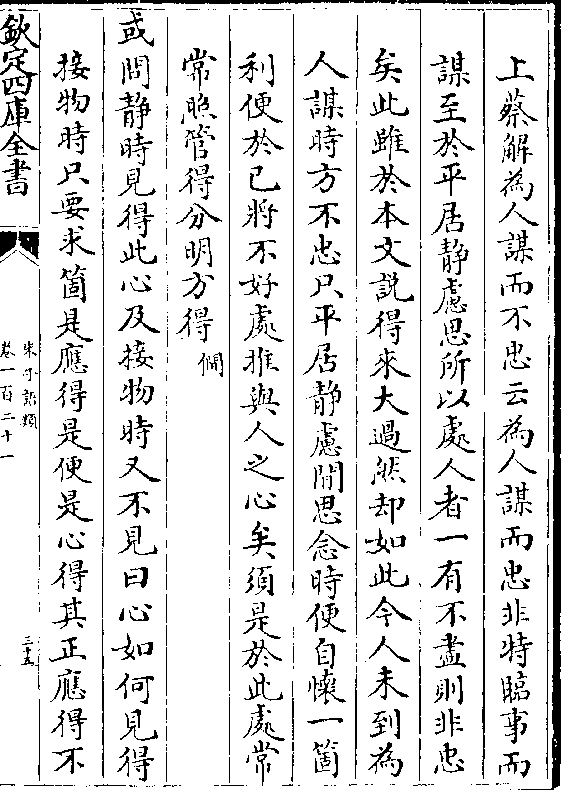 上蔡解為人謀而不忠云為人謀而忠非特臨事而
謀至於平居靜慮思所以處人者一有不盡則非忠
矣此雖於本文說得來大過然却如此今人未到為
人謀時方不忠只平居靜慮閒思念時便自懷一箇
利便於已將不好處推與人之心矣須是於此處常
常照管得分明方得僩
或問靜時見得此心及接物時又不見曰心如何見得
接物時只要求箇是應得是便是心得其正應得不
欽定四庫全書
朱子語類
卷一百二十一
三十五